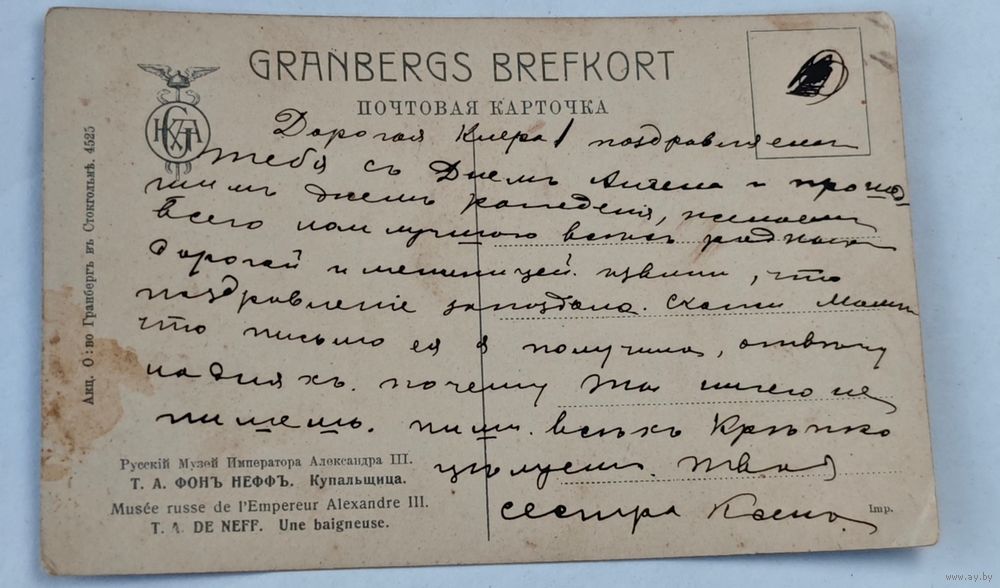 GRANBERGS BREFKORT
ПОЧТОВАЯ КАРТОЧКА
Акц. О:во Гранбергъ въ Стокгольмѣ. 4525
Дорогая Клера! поздравляемъ
тебя съ Днемъ Ангела и прошед-
шимъ днемъ рождения, желаемъ
всего нам лучшого всехъ
дорогой именницей. извини, что
поздравленіе запоздало. скажи Маме
что письмо ея я получила, отвѣчу
на дняхъ. почему ты ничего не
пишешь. пиши. всѣхъ Крѣпко
цѣлуемъ. твоя
сестра
Русскій Музей Императора Александра III.
Т. А. ФОНЪ НЕФФЪ. Купальщица.
Musée russe de l'Empereur Alexandre III.
T. A. DE NEFF. Une baigneuse.
Imp.
www.ay.by